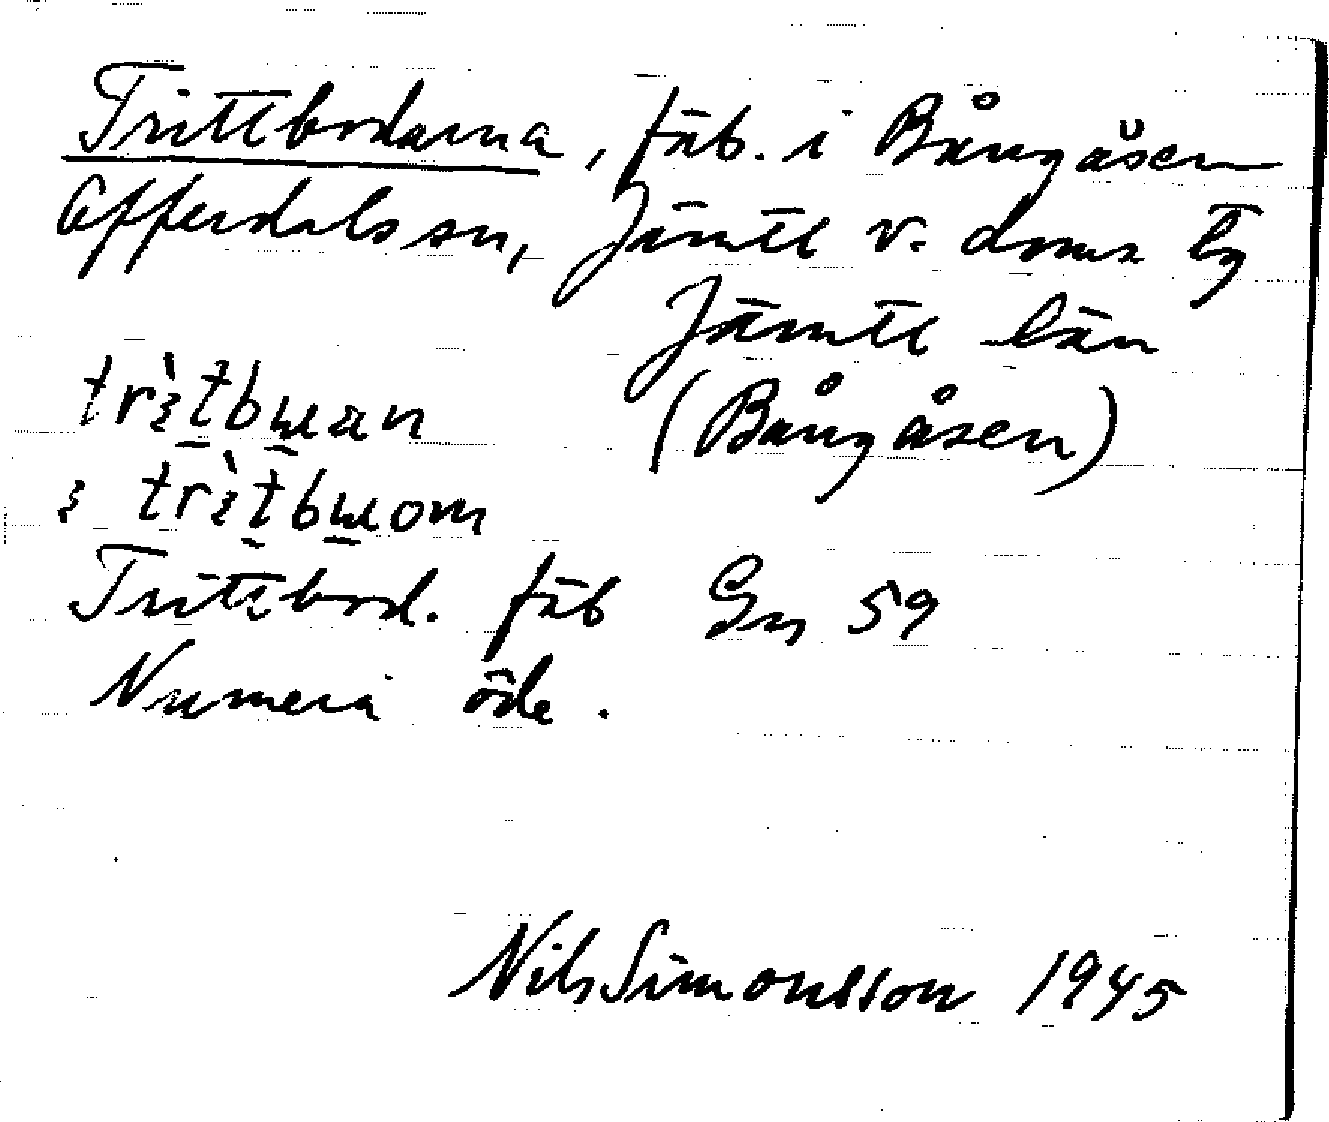 Trittbodarna, fäb. i Bångåsen
Offerdals sn, Jämtl v. doms tg
Jämtl län
(Bångåsen)
Trittbod. fäb Gn 59
Numera öde.
Nils Simonsson 1945